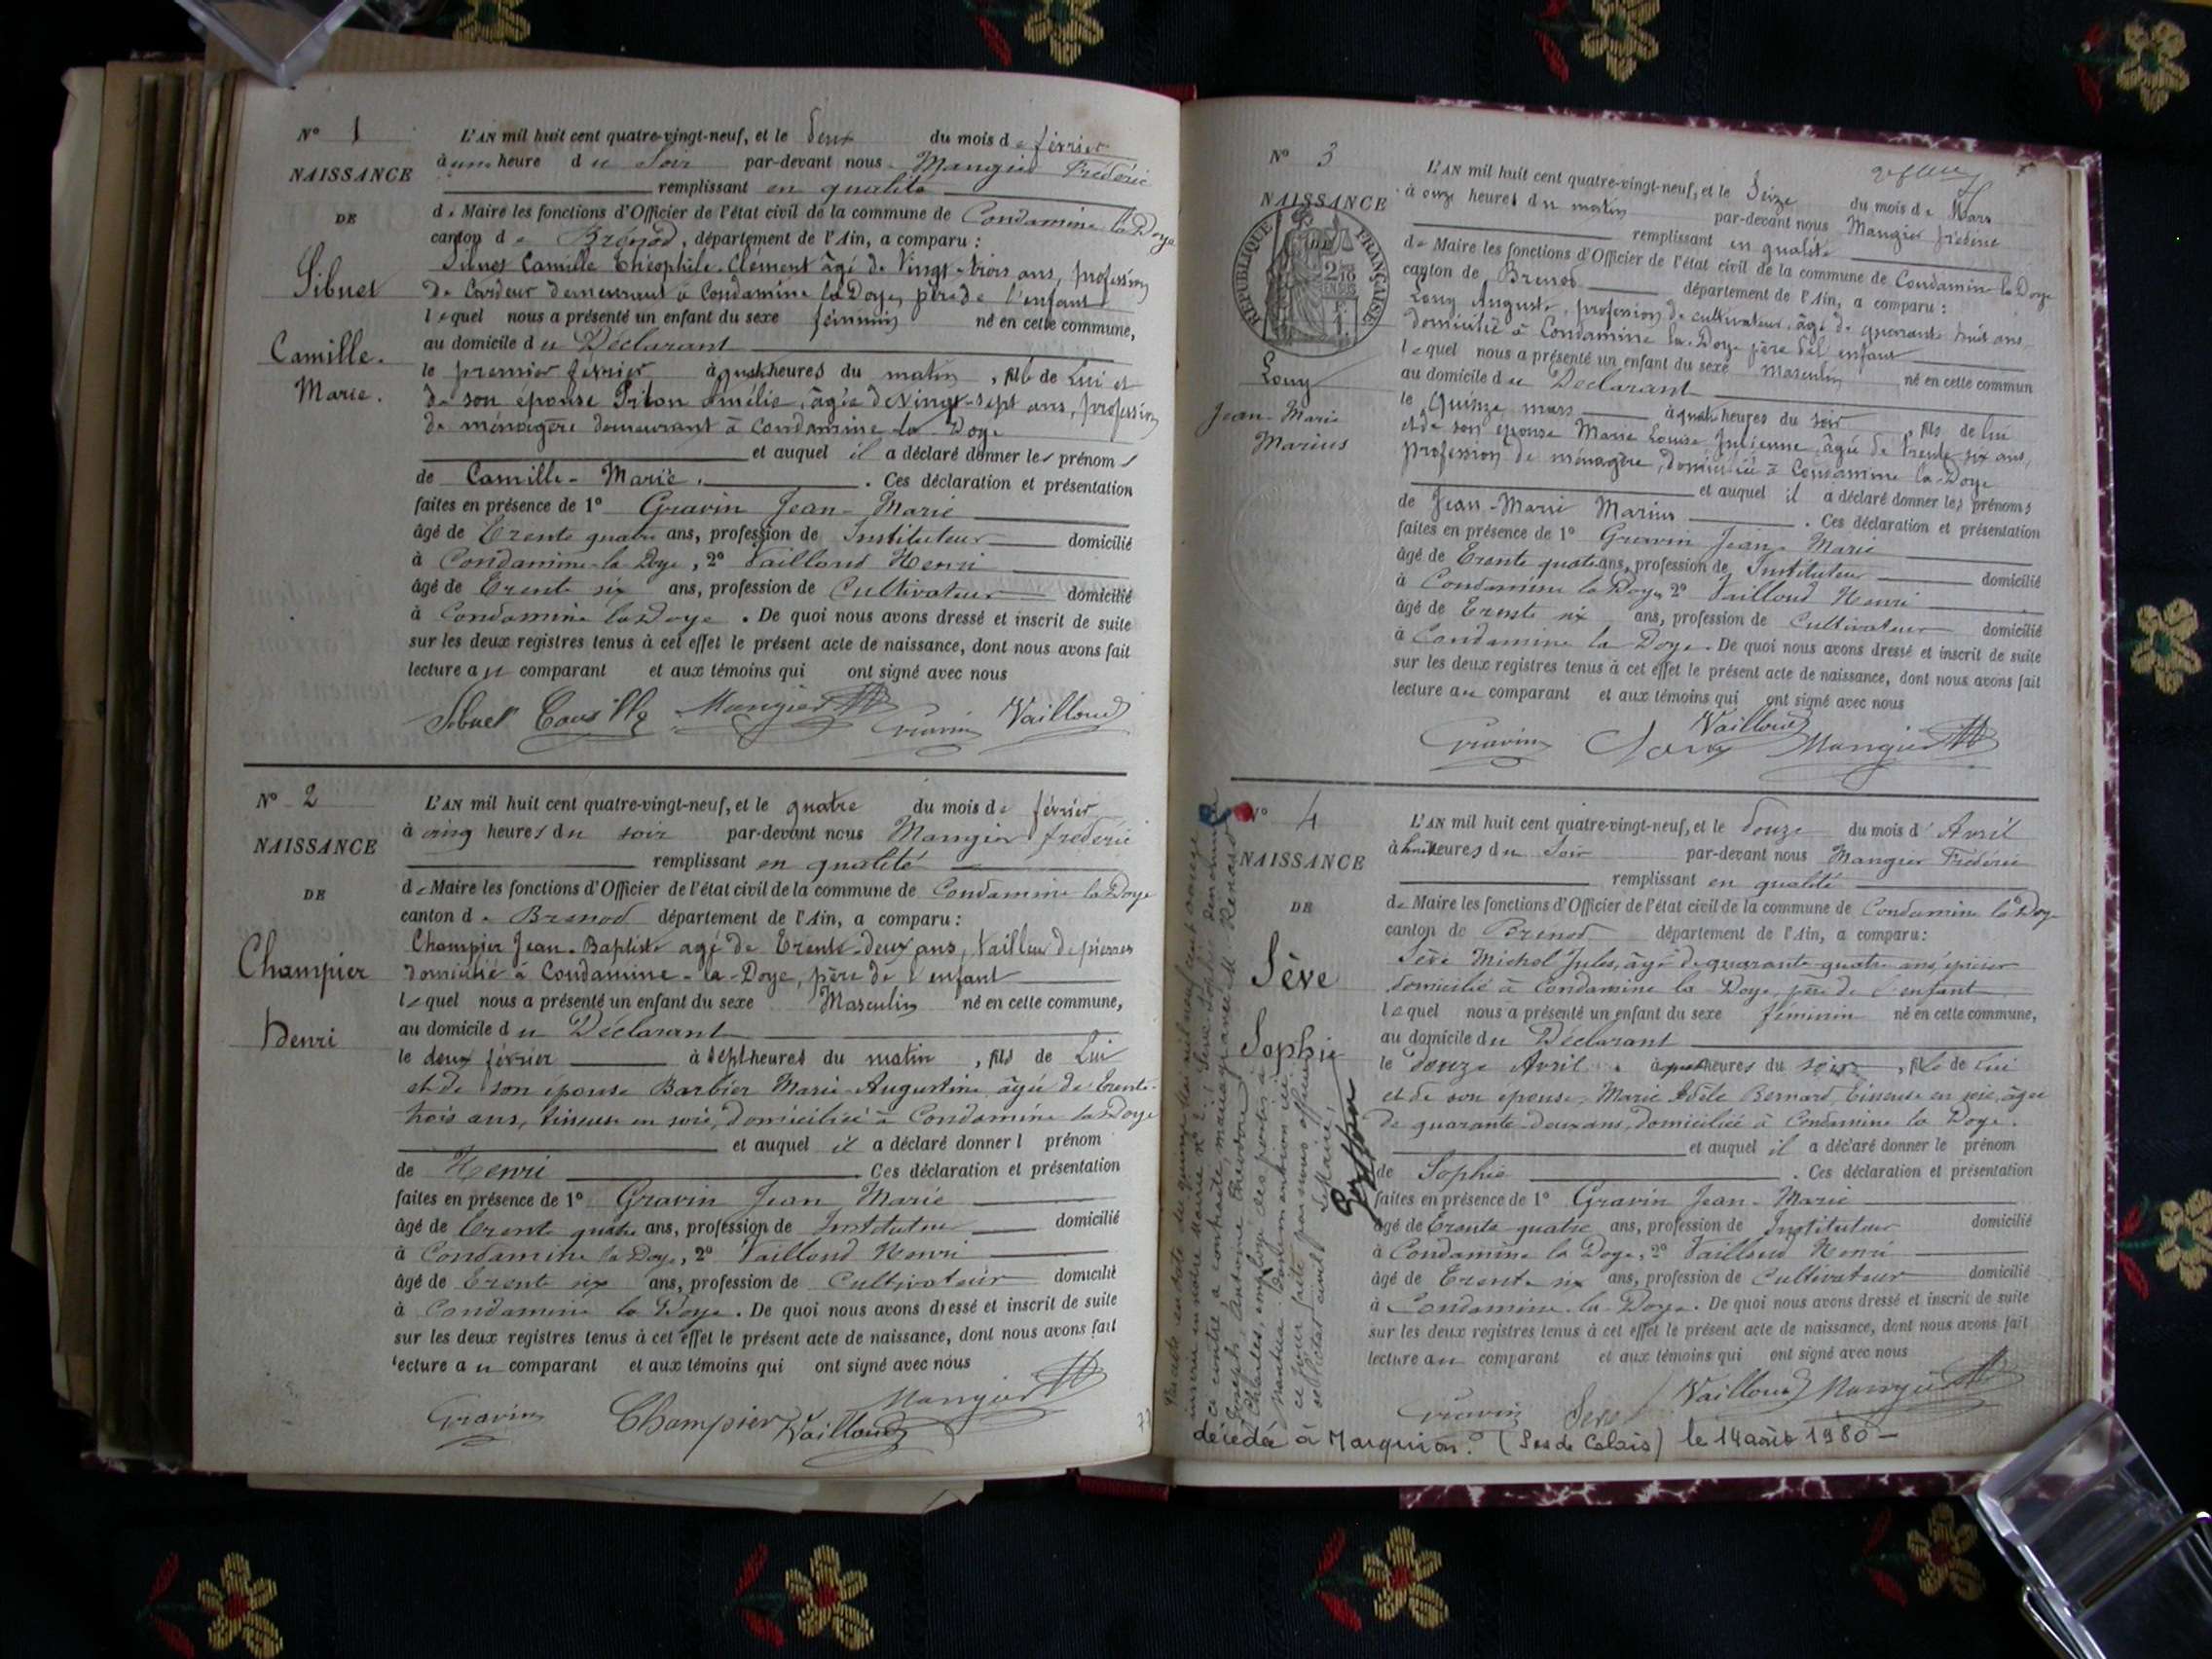 N° 1
NAISSANCE
DE
Sibuet
Camille.
Marie.
L'AN mil huit cent quatre-vingt-neuf, et le deux du mois de février
à une heure du soir par-devant nous Mangier Frédéric
remplissant en qualité
de Maire les fonctions d'Officier de l'état civil de la commune de Condamine la Doye
canton de Brénod, département de l'Ain, a comparu :
Sibuet Camille Théophile Clément âgé de vingt-trois ans, profession
de Cardeur demeurant à Condamine la Doye, père de l'enfant
lequel nous a présenté un enfant du sexe féminin né en cette commune,
au domicile du Déclarant
le premier février à quatre heures du matin, fille de Lui et
de son épouse Pilon Amélie, âgée de vingt-sept ans, profession
de ménagère demeurant à Condamine la Doye
et auquel il a déclaré donner les prénoms
de Camille-Marie. Ces déclaration et présentation
faites en présence de 1° Gravin Jean-Marie
âgé de Trente quatre ans, profession de Instituteur domicilié
à Condamine-la Doye, 2° Vailloud Henri
âgé de Trente six ans, profession de Cultivateur domicilié
à Condamine la Doye. De quoi nous avons dressé et inscrit de suite
sur les deux registres tenus à cet effet le présent acte de naissance, dont nous avons fait
lecture au comparant et aux témoins qui ont signé avec nous
Sibuet Camille Mangier Gravin Vailloud
N° 2
NAISSANCE
DE
Champier
Henri
L'AN mil huit cent quatre-vingt-neuf, et le quatre du mois de février
à cinq heures du soir par-devant nous Mangier frédéric
remplissant en qualité
de Maire les fonctions d'Officier de l'état civil de la commune de Condamine la Doye
canton de Brenod département de l'Ain, a comparu :
Champier Jean-Baptiste agé de Trente-deux ans, tailleur de pierres
domicilié à Condamine-la-Doye, père de l'enfant
lequel nous a présenté un enfant du sexe Masculin né en cette commune,
au domicile du Déclarant
le deux février à sept heures du matin, fils de Lui
et de son épouse Barbier Marie-Augustine âgée de trente-
trois ans, tisseuse en soie, domiciliée à Condamine la Doye
et auquel il a déclaré donner l prénom
de Henri Ces déclaration et présentation
faites en présence de 1° Gravin Jean Marie
âgé de trente quatre ans, profession de Instituteur domicilié
à Condamine la Doye, 2° Vailloud Henri
âgé de Trente six ans, profession de Cultivateur domicilié
à Condamine la Doye. De quoi nous avons dressé et inscrit de suite
sur les deux registres tenus à cet effet le présent acte de naissance, dont nous avons fait
lecture au comparant et aux témoins qui ont signé avec nous
Gravin Champier Vailloud Mangier
N° 3
NAISSANCE
RÉPUBLIQUE FRANÇAISE
Louy
Jean-Marie
Marius
L'AN mil huit cent quatre-vingt-neuf, et le Seize du mois de Mars
à onze heures du matin par-devant nous Mangier frédéric
remplissant en qualité
de Maire les fonctions d'Officier de l'état civil de la commune de Condamine la Doye
canton de Brenod département de l'Ain, a comparu :
Louy Auguste, profession de cultivateur, âgé de quarante huit ans
domicilié à Condamine la Doye père de l'enfant
lequel nous a présenté un enfant du sexe masculin né en cette commun
au domicile du Déclarant
le Quinze mars à quatre heures du soir, fils de lui
et de son épouse Marie Louise Julienne, âgée de trente six ans,
profession de ménagère, domiciliée à Condamine la Doye
et auquel il a déclaré donner les prénoms
de Jean-Marie Marius. Ces déclaration et présentation
faites en présence de 1° Gravin Jean Marie
âgé de Trente quatre ans, profession de Instituteur domicilié
à Condamine la Doye, 2° Vailloud Henri
âgé de Trente six ans, profession de Cultivateur domicilié
à Condamine la Doye. De quoi nous avons dressé et inscrit de suite
sur les deux registres tenus à cet effet le présent acte de naissance, dont nous avons fait
lecture au comparant et aux témoins qui ont signé avec nous
Gravin Louy Vailloud Mangier
N° 4
NAISSANCE
DE
Sève
Sophie
L'AN mil huit cent quatre-vingt-neuf, et le douze du mois d'Avril
à huit heures du Soir par-devant nous Mangier Frédéric
remplissant en qualité
de Maire les fonctions d'Officier de l'état civil de la commune de Condamine la Doye
canton de Brenod département de l'Ain, a comparu :
Sève Michel Jules, âgé de quarante quatre ans, épicier
domicilié à Condamine la Doye, père de l'enfant
lequel nous a présenté un enfant du sexe féminin né en cette commune,
au domicile du Déclarant
le douze Avril à quatre heures du soir, fille de Lui
et de son épouse Marie Adèle Bernard, tisseuse en soie, âgée
de quarante-deux ans, domiciliée à Condamine la Doye.
et auquel il a déclaré donner le prénom
de Sophie. Ces déclaration et présentation
faites en présence de 1° Gravin Jean-Marie
âgé de trente quatre ans, profession de Instituteur domicilié
à Condamine la Doye, 2° Vailloud Henri
âgé de Trente six ans, profession de Cultivateur domicilié
à Condamine-la-Doye. De quoi nous avons dressé et inscrit de suite
sur les deux registres tenus à cet effet le présent acte de naissance, dont nous avons fait
lecture au comparant et aux témoins qui ont signé avec nous
Gravin Sève Vailloud Mangier
décédée à Marquion (Pas de Calais) le 14 août 1980